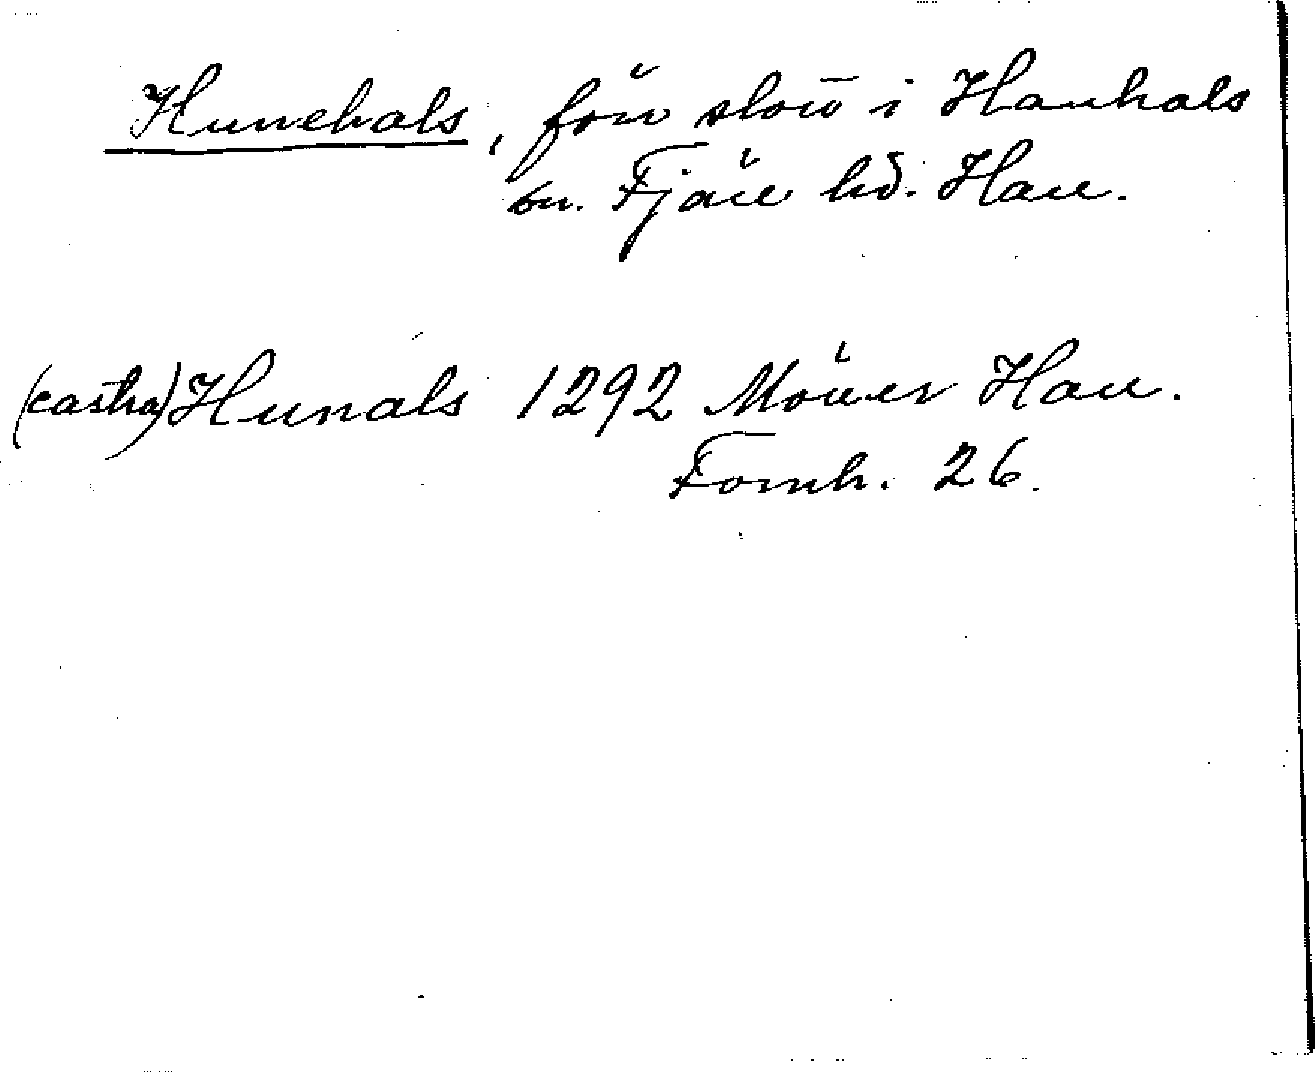 Hunehals, förr slott i Hanhals
sn. Fjäre hd. Hall.
(castra) Hunals 1292 Möller Hall.
Fornh. 26.